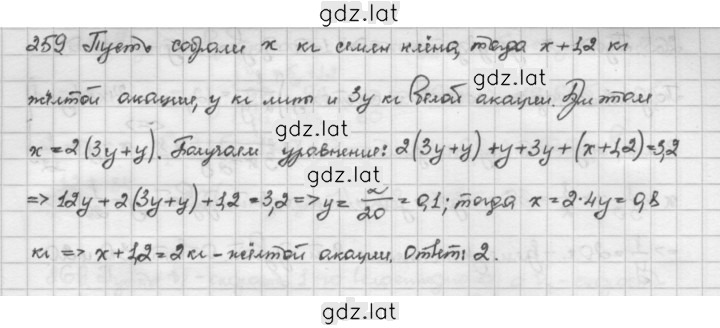 gdz.lat
259 Пусть собрали x кг семян клёна, тогда x+1,2 кг
gdz.lat
жёлтой акации, y кг липы и 3y кг белой акации. При этом
gdz.lat
x=2(3y+y). Получаем уравнение: 2(3y+y)+y+3y+(x+1,2)=3,2
gdz.lat
=> 12y+2(3y+y)+1,2=3,2 => y= 2/20 = 0,1; тогда x=2·4y=0,8
gdz.lat
кг => x+1,2=2кг - жёлтой акации. Ответ: 2.
gdz.lat